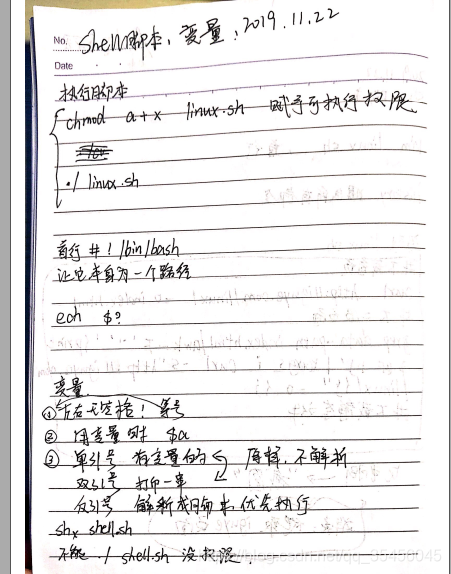 No. Shell脚本、变量、2019.11.22
Date
执行脚本
chmod a+x linux.sh 赋予可执行权限
./ linux.sh
首行 #! /bin/bash
让它本身为一个路径
ech $?
变量
① 左右无空格! 等号
② 用变量时 $a
③ 单引号 有变量的 原样,不解析
双引号 打印一串
反引号 解析成脚本 优先执行
sh x shell.sh
不能 ./ shell.sh 没权限.